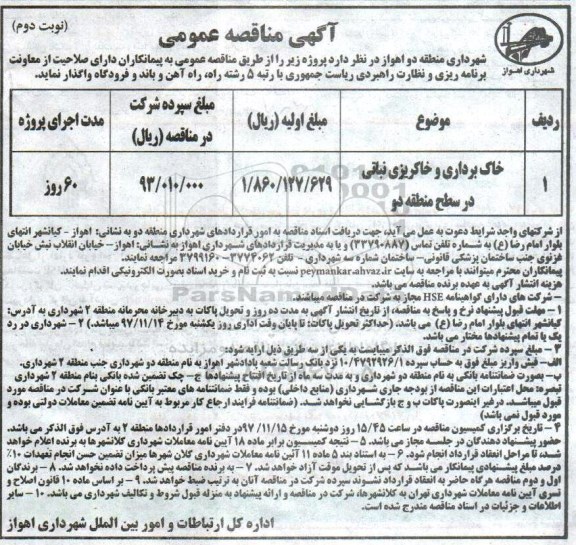 (نوبت دوم)
آگهی مناقصه عمومی
شهرداری اهواز
شهرداری منطقه دو اهواز در نظر دارد پروژه زیر را از طریق مناقصه عمومی به پیمانکاران دارای صلاحیت از معاونت
برنامه ریزی و نظارت راهبردی ریاست جمهوری با رتبه ۵ رشته راه، راه آهن و باند و فرودگاه واگذار نماید.
ردیف موضوع مبلغ اولیه (ریال) مبلغ سپرده شرکت در مناقصه (ریال) مدت اجرای پروژه
۱ خاک برداری و خاکریزی نباتی در سطح منطقه دو ۱/۸۶۰/۱۲۷/۶۲۹ ۹۳/۰۱۰/۰۰۰ ۶۰ روز
از شرکتهای واجد شرایط دعوت به عمل می آید، جهت دریافت اسناد مناقصه به امور قراردادهای شهرداری منطقه دو به نشانی: اهواز - کیانشهر انتهای
بلوار امام رضا (ع) به شماره تلفن تماس (۳۳۷۹۰۸۸۷) و یا به مدیریت قراردادهای شهرداری اهواز به نشانی: اهواز – خیابان انقلاب نبش خیابان
غزنوی جنب ساختمان پزشکی قانونی – ساختمان شماره سه شهرداری - تلفن ۳۷۷۴۰۶۲-۳۷۷۹۱۶۰ مراجعه نمایند.
پیمانکاران محترم میتوانند با مراجعه به سایت peymankar.ahvaz.ir نسبت به ثبت نام و خرید اسناد بصورت الکترونیکی اقدام نمایند.
هزینه انتشار آگهی به عهده برنده مناقصه می باشد.
- شرکت های دارای گواهینامه HSE مجاز به شرکت در مناقصه میباشند.
۱ - مهلت قبول پیشنهاد نرخ و پاسخ به مناقصه: از تاریخ انتشار آگهی به مدت ده روز و تحویل پاکات به دبیرخانه محرمانه منطقه ۲ شهرداری به آدرس:
کیانشهر انتهای بلوار امام رضا (ع) می باشد. (حداکثر تحویل پاکات: تا پایان وقت اداری روز یکشنبه مورخ ۹۷/۱۱/۱۴ میباشد.) ۲ - شهرداری در رد
یک یا تمام پیشنهادها مختار می باشد.
۳ - مبلغ سپرده شرکت در مناقصه فوق الذکر میبایست به یکی از سه طریق ذیل ارایه شود:
الف - فیش واریز مبلغ فوق به حساب سپرده ۱۰/۴۷۹۲۹۲۶/۱ نزد بانک رسالت شعبه پادادشهر اهواز به نام منطقه دو شهرداری جنب منطقه ۲ شهرداری.
ب- بصورت ضمانتنامه بانکی به نام منطقه دو شهرداری و به مدت سه ماه از تاریخ افتتاح پیشنهادها ج- چک تضمین شده بانکی بنام منطقه ۲ شهرداری
تبصره: محل اعتبارات این مناقصه از بودجه جاری شهرداری (منابع داخلی) بوده و فقط ضمانتنامه های معتبر بانکی با عنوان شرکت در مناقصه مورد
قبول میباشد. درغیر اینصورت پاکات ب و ج بازگشایی نخواهد شد. (ضمانتنامه فرایند ارجاع کار مربوط به آیین نامه تضمین معاملات دولتی بوده و
مورد قبول نمی باشد)
۴ - تاریخ برگزاری کمیسیون مناقصه در ساعت ۱۵/۴۵ روز دوشنبه مورخ ۹۷/۱۱/۱۵ در دفتر امور قراردادها منطقه ۲ به آدرس فوق الذکر می باشد.
حضور پیشنهاد دهندگان در جلسه مجاز می باشد. ۵ - نتیجه کمیسیون برابر ماده ۱۸ آیین نامه معاملات شهرداری کلانشهرها به برنده اعلام خواهد
شد، تا مراحل انعقاد قرارداد انجام شود. ۶ - به استناد بند ۵ ماده ۱۱ آئین نامه معاملات شهرداری کلان شهرها میزان تضمین حسن انجام تعهدات ۱۰٪
درصد مبلغ پیشنهادی پیمانکار می باشد که پس از تحویل موقت آزاد خواهد شد. ۷ - به برنده مناقصه پیش پرداخت داده نخواهد شد. ۸ - برندگان
اول و دوم مناقصه هرگاه حاضر به انعقاد قرارداد نشوند سپرده شرکت در مناقصه آنان به ترتیب ضبط خواهد شد. ۹ - بر اساس ماده ۱۰ قانون اصلاح و
تسری آیین نامه معاملات شهرداری تهران به کلانشهرها، شرکت در مناقصه و ارائه پیشنهاد به منزله قبول شروط و تکالیف شهرداری می باشد. ۱۰ - سایر
اطلاعات و جزئیات در اسناد مناقصه مندرج شده است.
اداره کل ارتباطات و امور بین الملل شهرداری اهواز